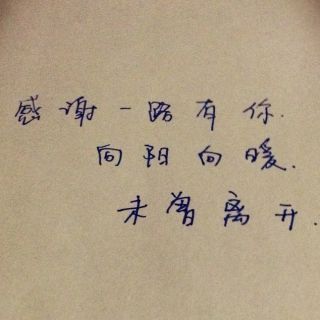 感谢一路有你.
向阳向暖.
未曾离开.